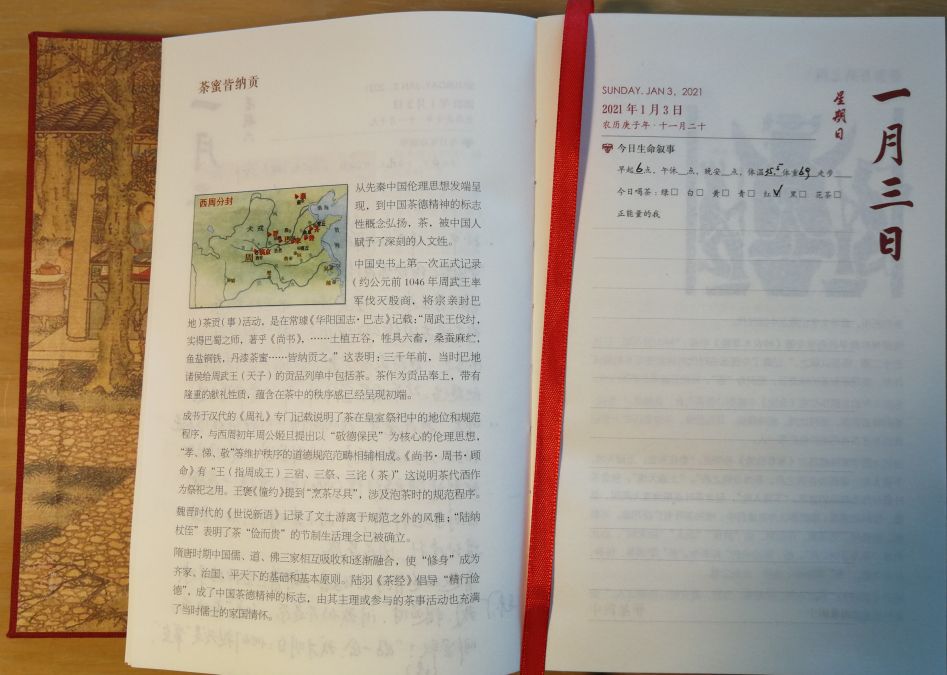 茶蜜皆纳贡
西周分封
犬戎
周
从先秦中国伦理思想发端呈
现，到中国茶德精神的标志
性概念弘扬，茶，被中国人
赋予了深刻的人文性。
中国史书上第一次正式记录
（约公元前1046年周武王率
军伐灭殷商，将宗亲封巴
地）茶贡（事）活动，是在常璩《华阳国志·巴志》记载：“周武王伐纣，
实得巴蜀之师，著乎《尚书》，……土植五谷，牲具六畜，桑蚕麻纻，
鱼盐铜铁，丹漆茶蜜……皆纳贡之。”这表明：三千年前，当时巴地
诸侯给周武王（天子）的贡品列单中包括茶。茶作为贡品奉上，带有
隆重的献礼性质，蕴含在茶中的秩序感已经呈现初端。
成书于汉代的《周礼》专门记载说明了茶在皇室祭祀中的地位和规范
程序，与西周初年周公姬旦提出以“敬德保民”为核心的伦理思想，
“孝、悌、敬”等维护秩序的道德规范范畴相辅相成。《尚书·周书·顾
命》有“王（指周成王）三宿、三祭、三诧（茶）”这说明茶代酒作
为祭祀之用。王褒《僮约》提到“烹茶尽具”，涉及泡茶时的规范程序。
魏晋时代的《世说新语》记录了文士游离于规范之外的风雅；“陆纳
杖侄”表明了茶“俭而贵”的节制生活理念已被确立。
隋唐时期中国儒、道、佛三家相互吸收和逐渐融合，使“修身”成为
齐家、治国、平天下的基础和基本原则。陆羽《茶经》倡导“精行俭
德”，成了中国茶德精神的标志，由其主理或参与的茶事活动也充满
了当时儒士的家国情怀。
SUNDAY. JAN 3, 2021
2021年1月3日
农历庚子年·十一月二十
今日生命叙事
早起6点，午休__点，晚安__点，体温35.5体重69走步__
今日喝茶：绿□ 白□ 黄□ 青□ 红☑ 黑□ 花茶□
正能量的我
星期日
一月三日